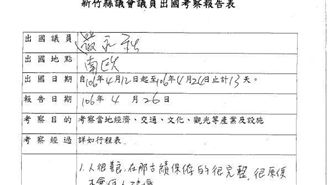 新竹縣議會議員出國考察報告表
出國議員
出國地點 南歐
出國日期 自106年4月12日起至106年4月24日止計13天。
報告日期 106年 4月 26日
考察目的 考察當地經濟、交通、文化、觀光等產業及設施
考察經過 詳如行程表。
1. 人很親民,在那古蹟保存的很完整,很原味